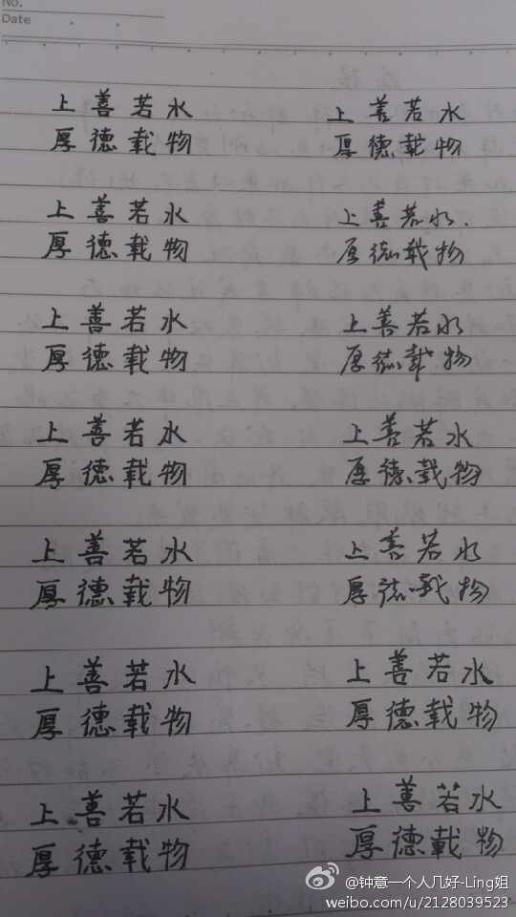 No.
Date
上善若水 上善若水
厚德载物 厚德载物
上善若水 上善若水.
厚德载物 厚德载物
上善若水 上善若水
厚德载物 厚德载物
上善若水 上善若水
厚德载物 厚德载物
上善若水 上善若水
厚德载物 厚德载物
上善若水 上善若水
厚德载物 厚德载物
上善若水 上善若水
厚德载物 厚德载物
@钟意一个人几好-Ling姐
weibo.com/u/2128039523